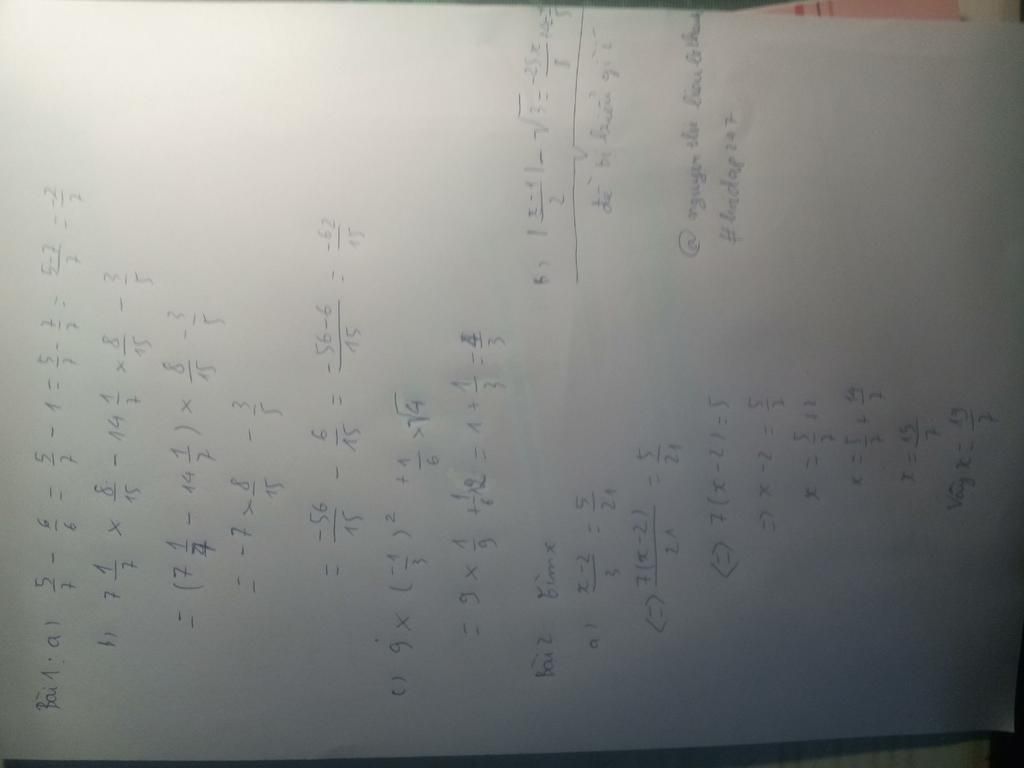 Bài 1: a) 5/7 - 6/6 = 5/7 - 1 = 5/7 - 7/7 = (5-7)/7 = -2/7
b, 7 1/7 × 8/15 - 14 1/7 × 8/15 - 3/5
= (7 1/7 - 14 1/7) × 8/15 - 3/5
= -7 × 8/15 - 3/5
= -56/15 - 6/15 = (-56-6)/15 = -62/15
c) 9 × (-1/3)² + 1/6 × √4
= 9 × 1/9 + 1/6 × 2 = 1 + 1/3 = 4/3
Bài 2: tìm x
a) (x-2)/3 = 5/21
<=> 7(x-2)/21 = 5/21
<=> 7(x-2) = 5
=> x-2 = 5/7
x = 5/7 + 2
x = 5/7 + 14/7
x = 19/7
Vậy x = 19/7
b, |(x-1)/2| - √3 =
đề bị
@ nguyen